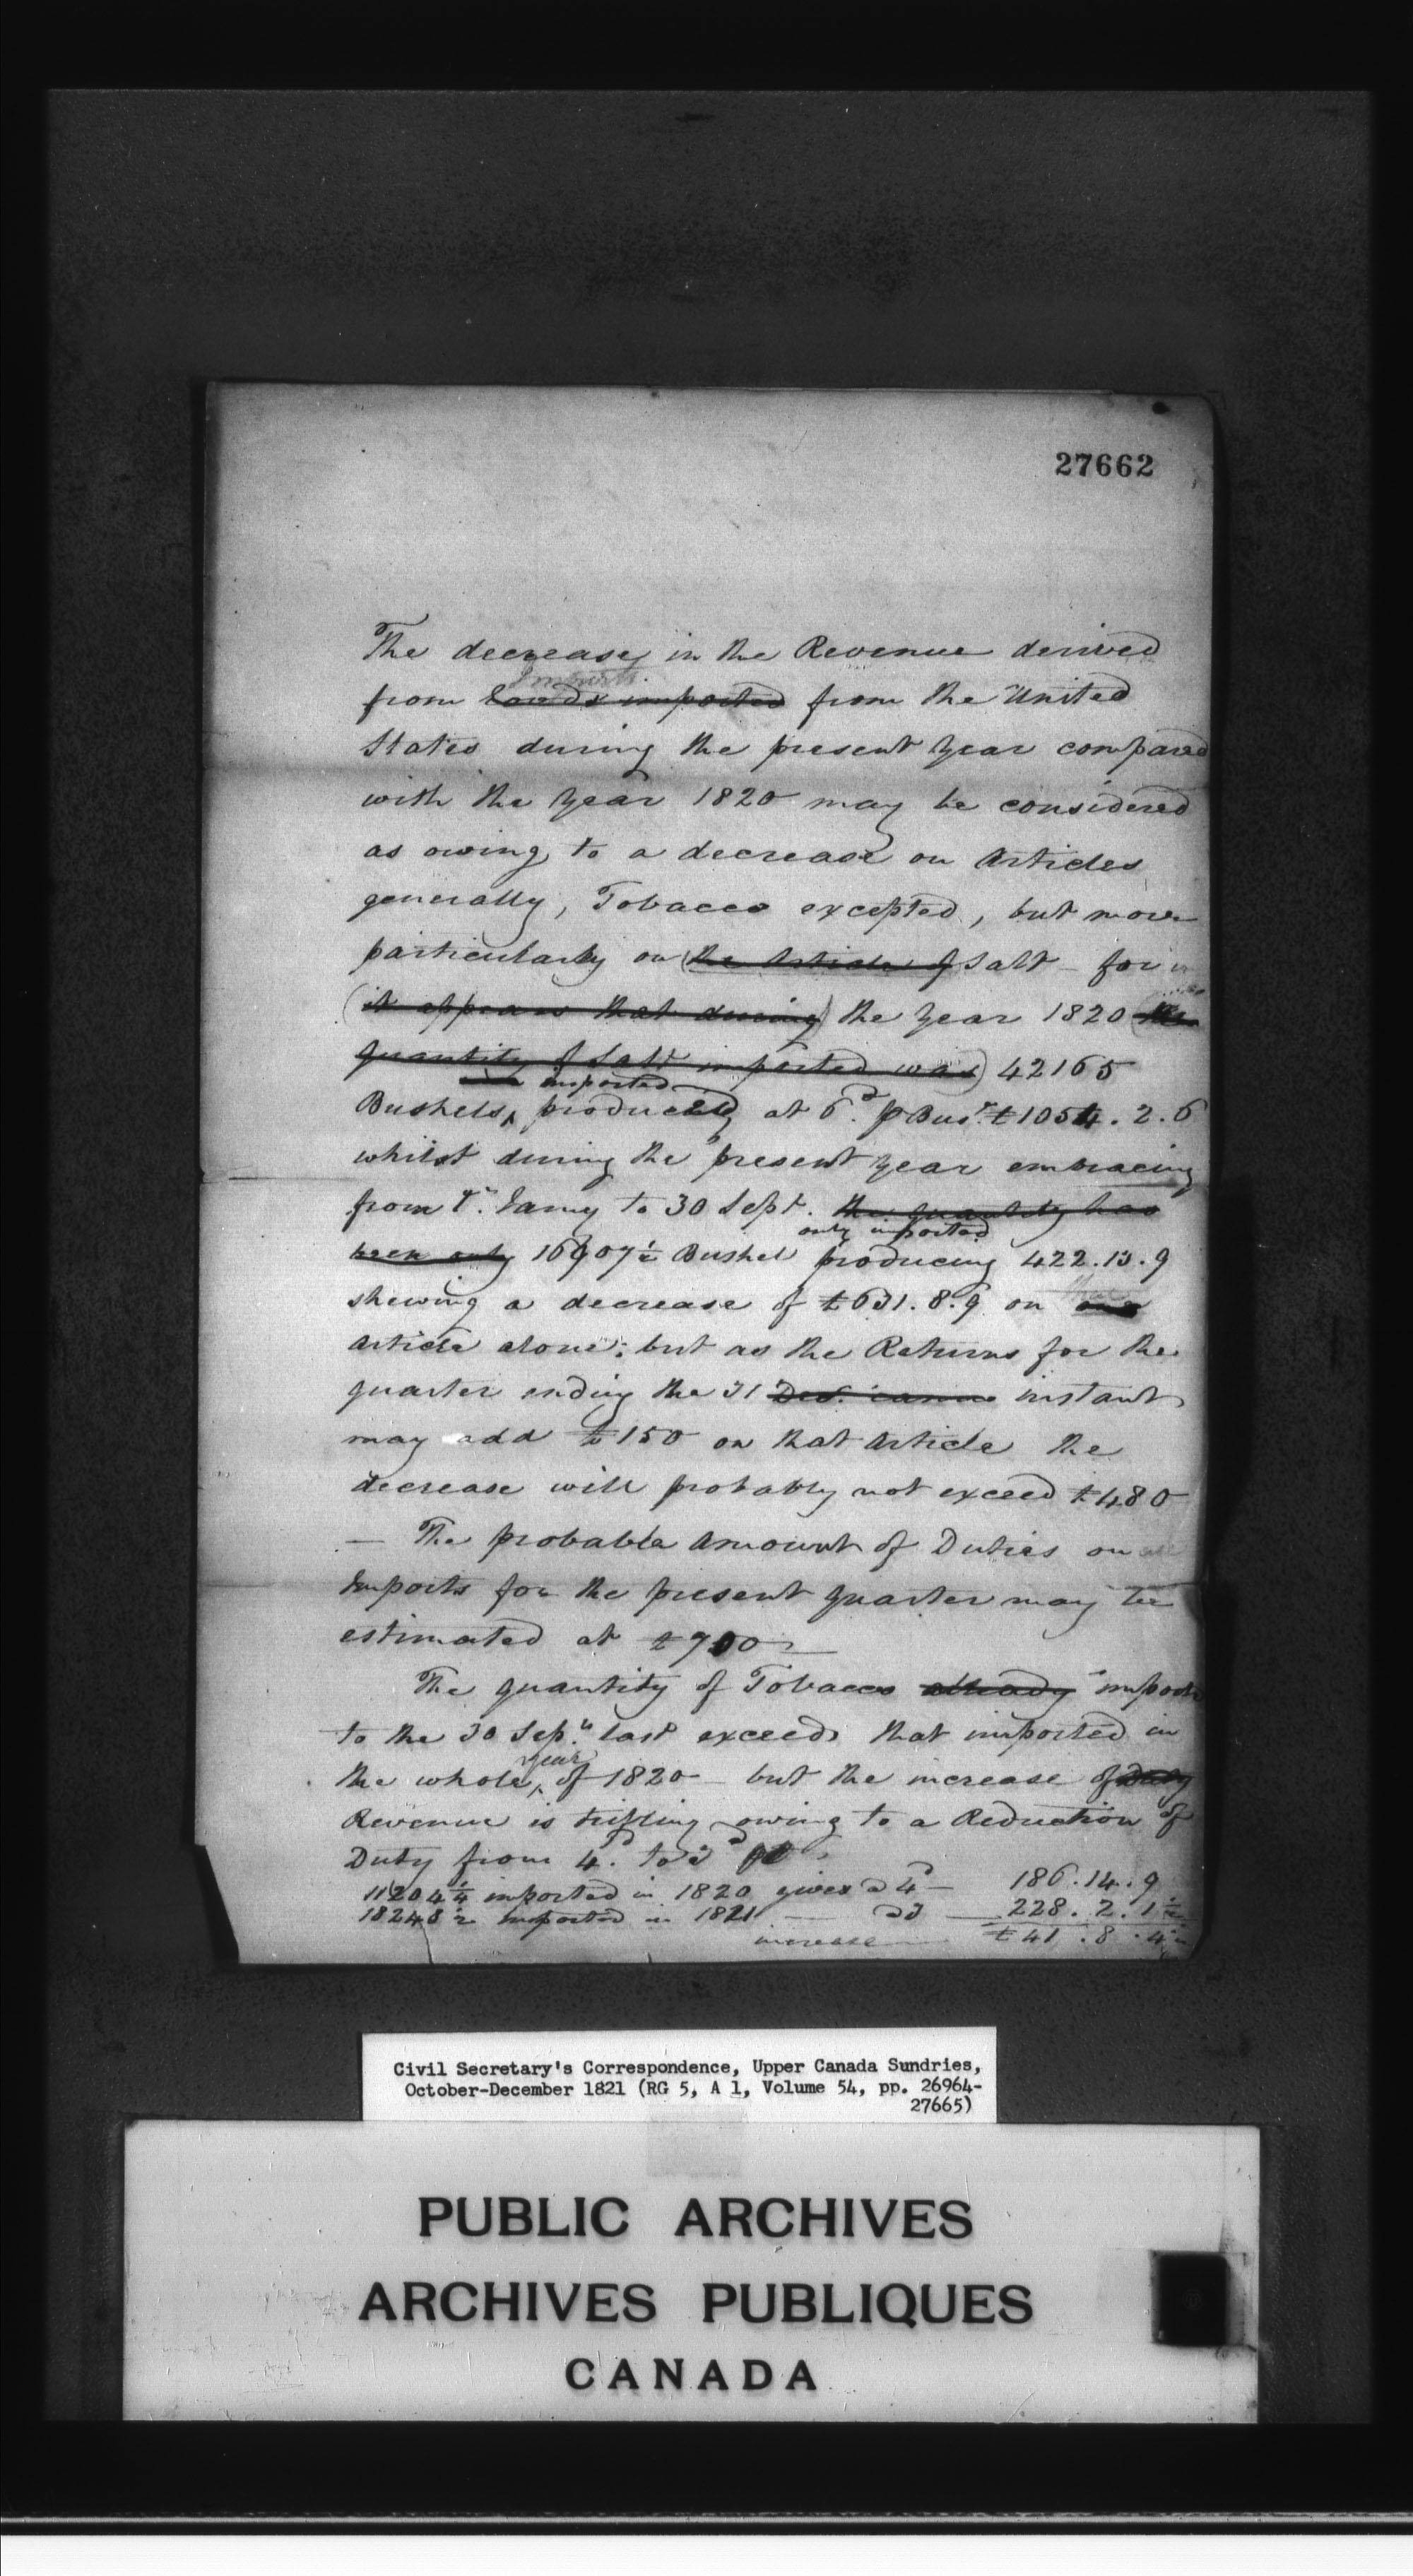 27662
The decrease in the Revenue derived
Imports
from ~~Goods imported~~ from the United
States during the present Year compared
with the Year 1820 may be considered
as owing to a decrease on Articles
generally, Tobacco excepted, but more
particularly on (~~the Article of~~ Salt – for in
(~~it appears that during~~) the Year 1820 (~~the~~
~~quantity of Salt imported was~~) 42165
imported
Bushels, produced at 6d. p Busl. £1054.2.6
whilst during the present year embracing
from 1st. Jany to 30 Sept. ~~the quantity has~~
only imported
~~been only~~ 16907½ Bushel producing 422.13.9
shewing a decrease of £631.8.9 on that
article alone; but as the Returns for the
quarter ending the 31 instant
may add £150 on that Article the
decrease will probably not exceed £480
— The probable Amount of Duties on all
Imports for the present quarter may be
estimated at £700 —
The quantity of Tobacco ~~already~~ import
to the 30 Sepr. last exceeds that imported in
year
the whole ‸ of 1820 – but the increase of ~~Duty~~
Revenue is trifling owing to a Reduction of
Duty from 4d. to 3d
11204¼ imported in 1820 gives @ 4 — 186.14.9
18248½ imported in 1821 — @ 3 — 228.2.1½
increase — £41.8.4½
Civil Secretary's Correspondence, Upper Canada Sundries,
October-December 1821 (RG 5, A 1, Volume 54, pp. 26964-
27665)
PUBLIC ARCHIVES
ARCHIVES PUBLIQUES
CANADA